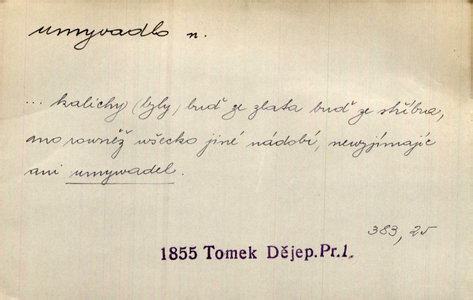 umyvadlo n.
... kalichy (byly) buď ze zlata buď ze stříbra,
ano rovněž všecko jiné nádobí, nevyjímajíc
ani umywadel.
383, 25
1855 Tomek Děj​ep.Pr.1.